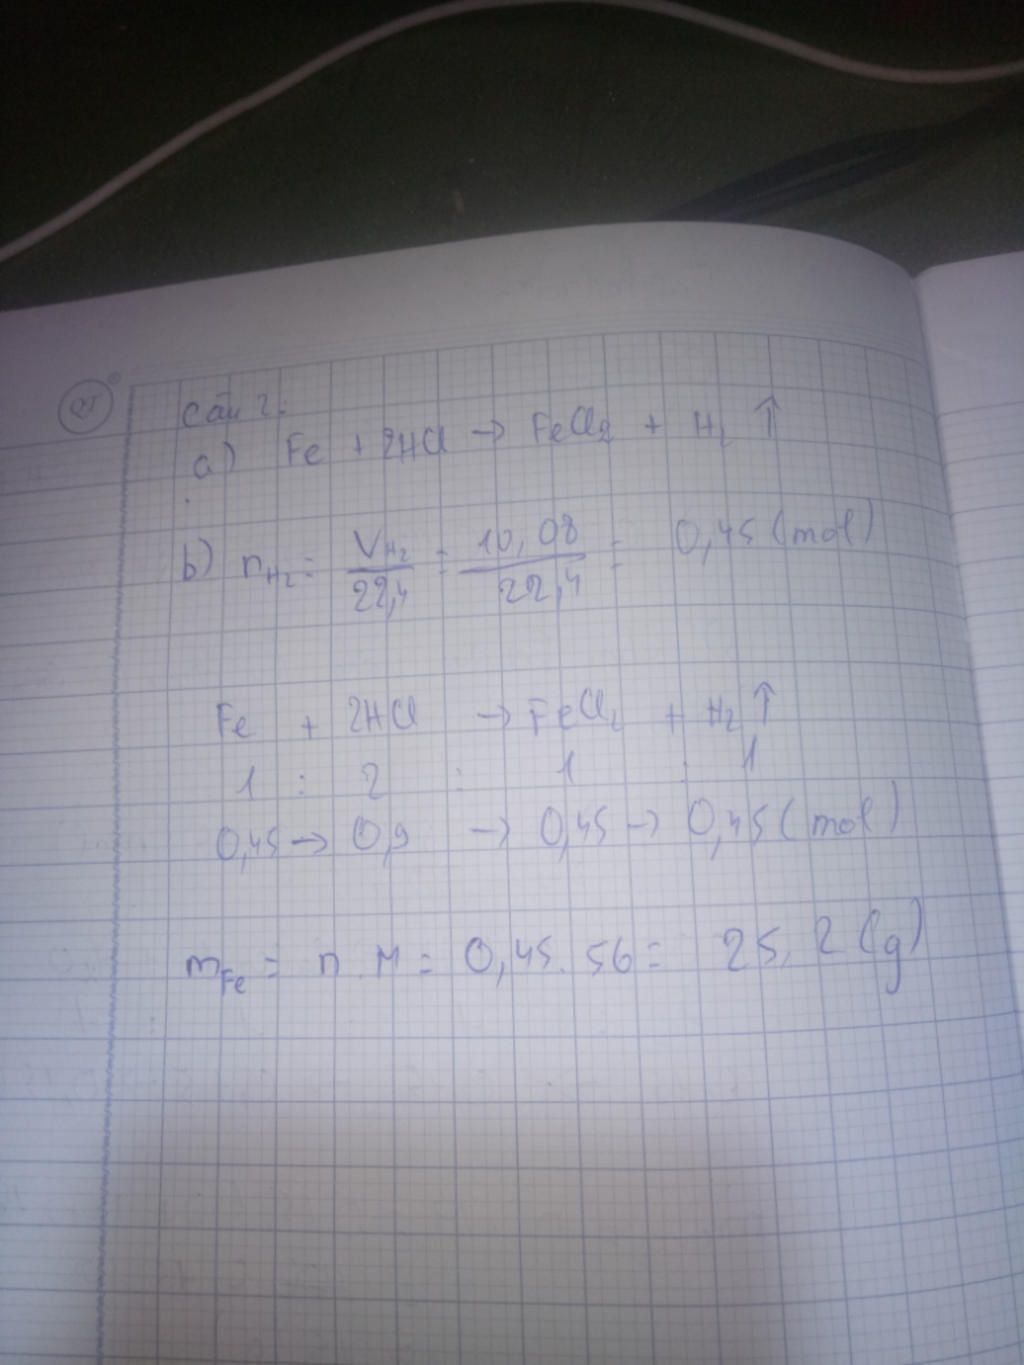 Câu 2:
a) Fe + 2HCl → FeCl2 + H2 ↑
b) nH2 = VH2/22,4 = 10,08/22,4 = 0,45 (mol)
Fe + 2HCl → FeCl2 + H2 ↑
1 : 2 : 1 : 1
0,45 → 0,9 → 0,45 → 0,45 (mol)
mFe = n . M = 0,45 . 56 = 25,2 (g)